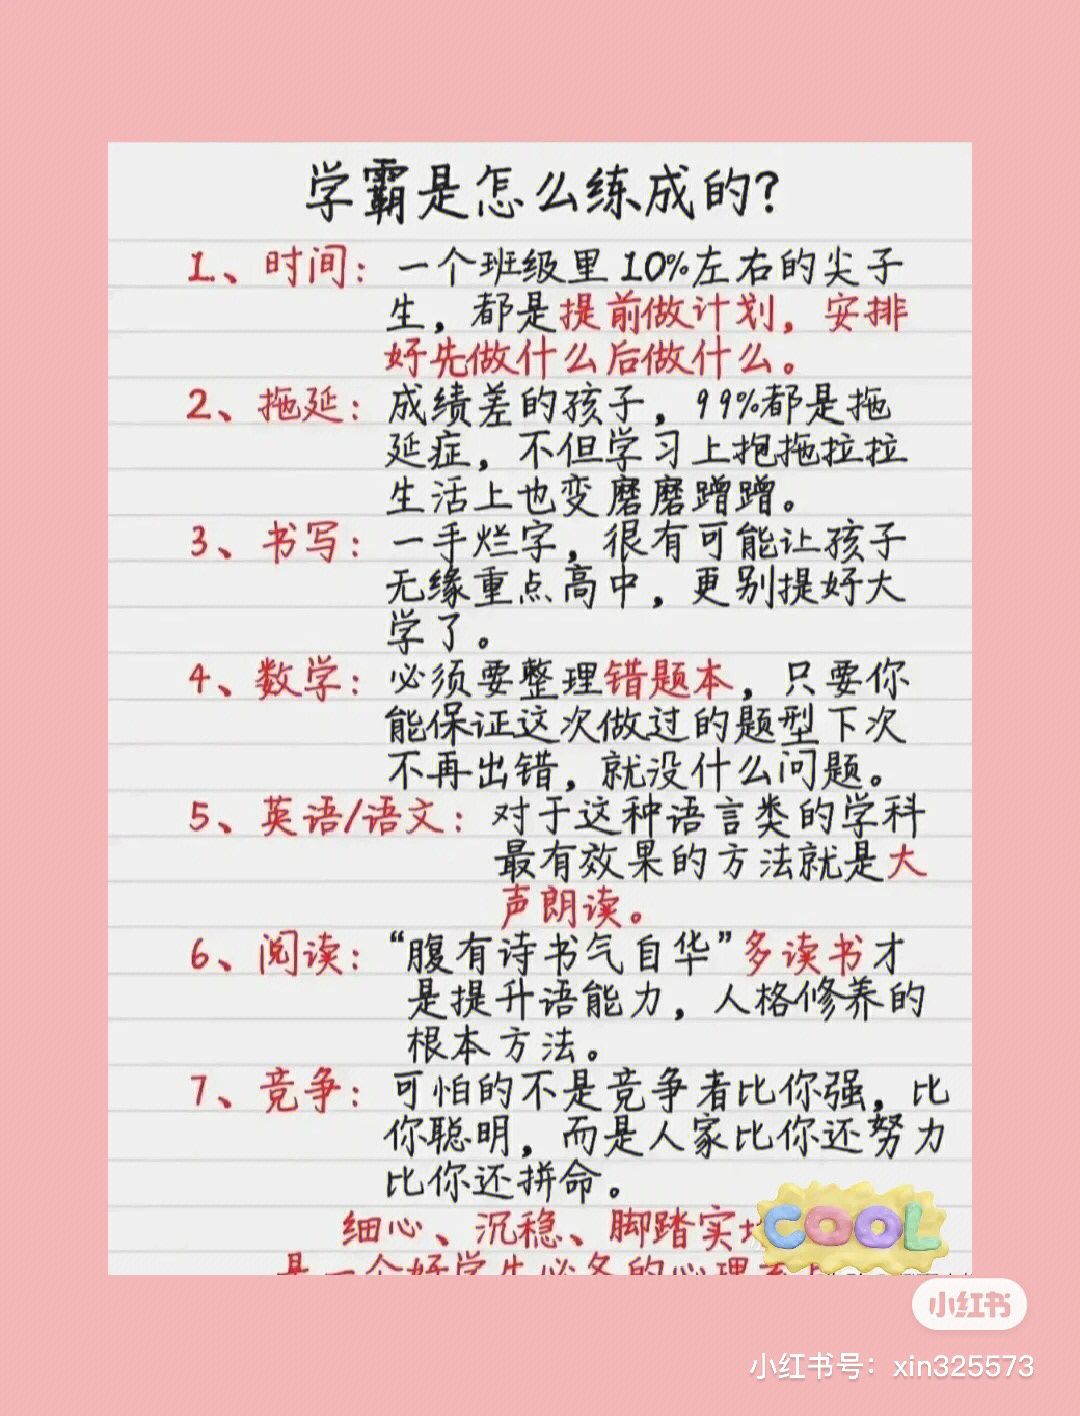 学霸是怎么练成的?
1、时间：一个班级里10%左右的尖子
生，都是提前做计划，安排
好先做什么后做什么。
2、拖延：成绩差的孩子，99%都是拖
延症，不但学习上抱拖拉拉
生活上也变磨磨蹭蹭。
3、书写：一手烂字，很有可能让孩子
无缘重点高中，更别提好大
学了。
4、数学：必须要整理错题本，只要你
能保证这次做过的题型下次
不再出错，就没什么问题。
5、英语/语文：对于这种语言类的学科
最有效果的方法就是大
声朗读。
6、阅读：“腹有诗书气自华”多读书才
是提升语能力，人格修养的
根本方法。
7、竞争：可怕的不是竞争者比你强，比
你聪明，而是人家比你还努力
比你还拼命。
细心、沉稳、脚踏实
COOL
是一个好学生必备的心理
小红书
小红书号：xin325573